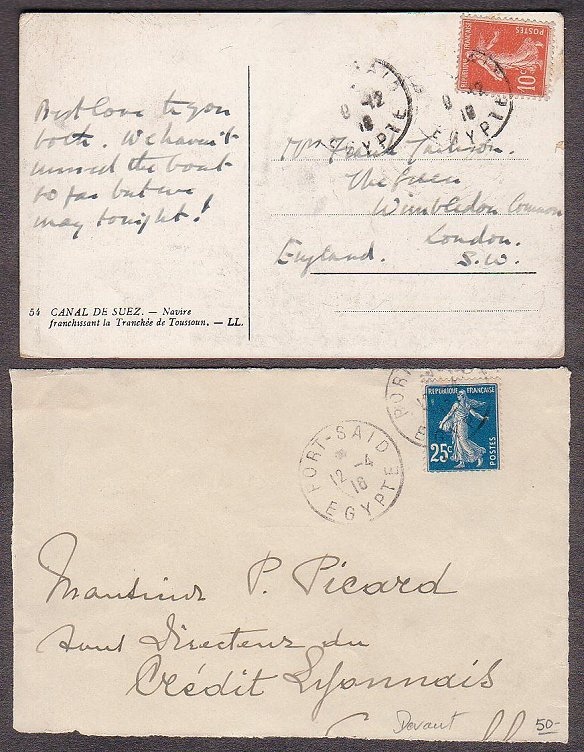 Best love to you
both. We haven't
missed the boat
so far but we
may tonight!
REPUBLIQUE FRANÇAISE
POSTES
10c
SAID
12
18
EGYPTE
12
18
EGYPTE
Mrs Frank
The Green
Wimbledon Common
London.
England. S.W.
54 CANAL DE SUEZ. — Navire
franchissant la Tranchée de Toussoun. — LL.
PORT
REPUBLIQUE FRANÇAISE
25c
POSTES
PORT-SAID
* -4
12 18
EGYPTE
Monsieur P. Picard
sous Directeur du
Crédit Lyonnais
Devant
50-